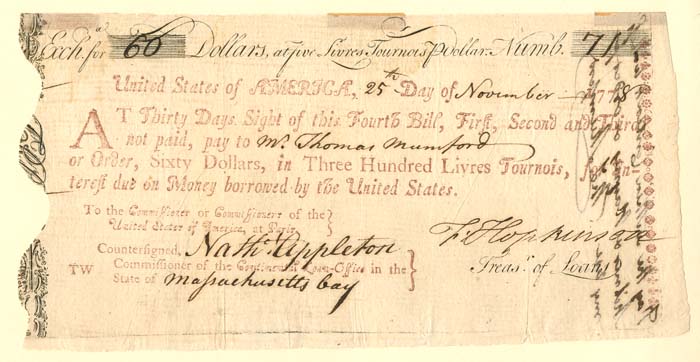 Exch.ᵃ for 60 Dollars, at five Livres Tournois ℘ Dollar. Numb. 71
United States of AMERICA, 25th Day of November 1778
AT Thirty Days Sight of this Fourth Bill, First, Second and Third
not paid, pay to Mr. Thomas Mumford
or Order, Sixty Dollars, in Three Hundred Livres Tournois, for In
terest due on Money borrowed by the United States.
To the Commissioner or Commissioners of the
United States of America, at Paris.
F. Hopkinson
Treasr. of Loans
Countersigned, Nath. Appleton
TW Commissioner of the Continental Loan-Office in the
State of Massachusetts bay